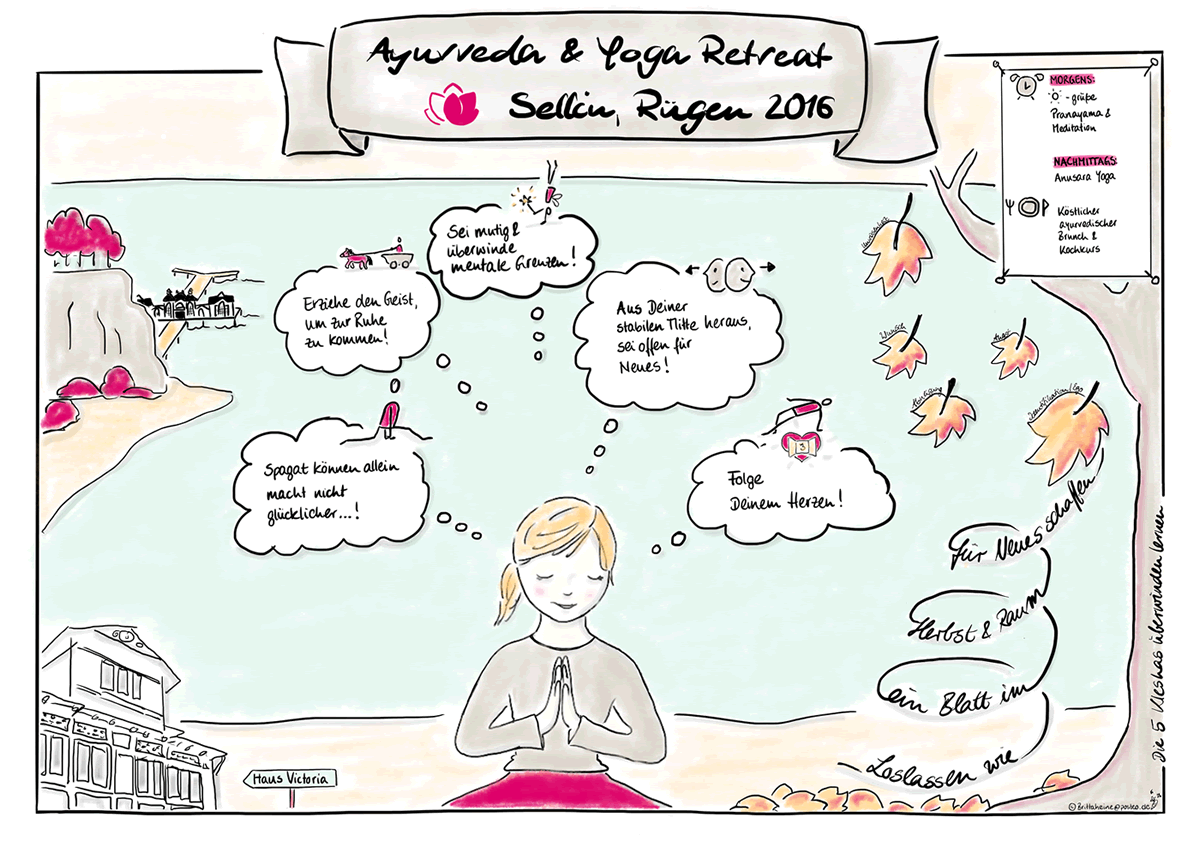 Ayurveda & Yoga Retreat
Sellin, Rügen 2016
MORGENS:
-grüße
Pranayama &
Meditation
NACHMITTAGS:
Anusara Yoga
Köstlicher
ayurvedischer
Brunch &
Kochkurs
Sei mutig &
überwinde
mentale Grenzen!
Erziehe den Geist,
um zur Ruhe
zu kommen!
Aus Deiner
stabilen Mitte heraus,
sei offen für
Neues!
Spagat können allein
macht nicht
glücklicher...!
3
Folge
Deinem Herzen!
Unwissenheit
Wunsch
Angst
Abneigung
Identifikation/Ego
für Neues schaffen
Herbst & Raum
ein Blatt im
Loslassen wie
Die 5 Kleshas überwinden lernen
Haus Victoria